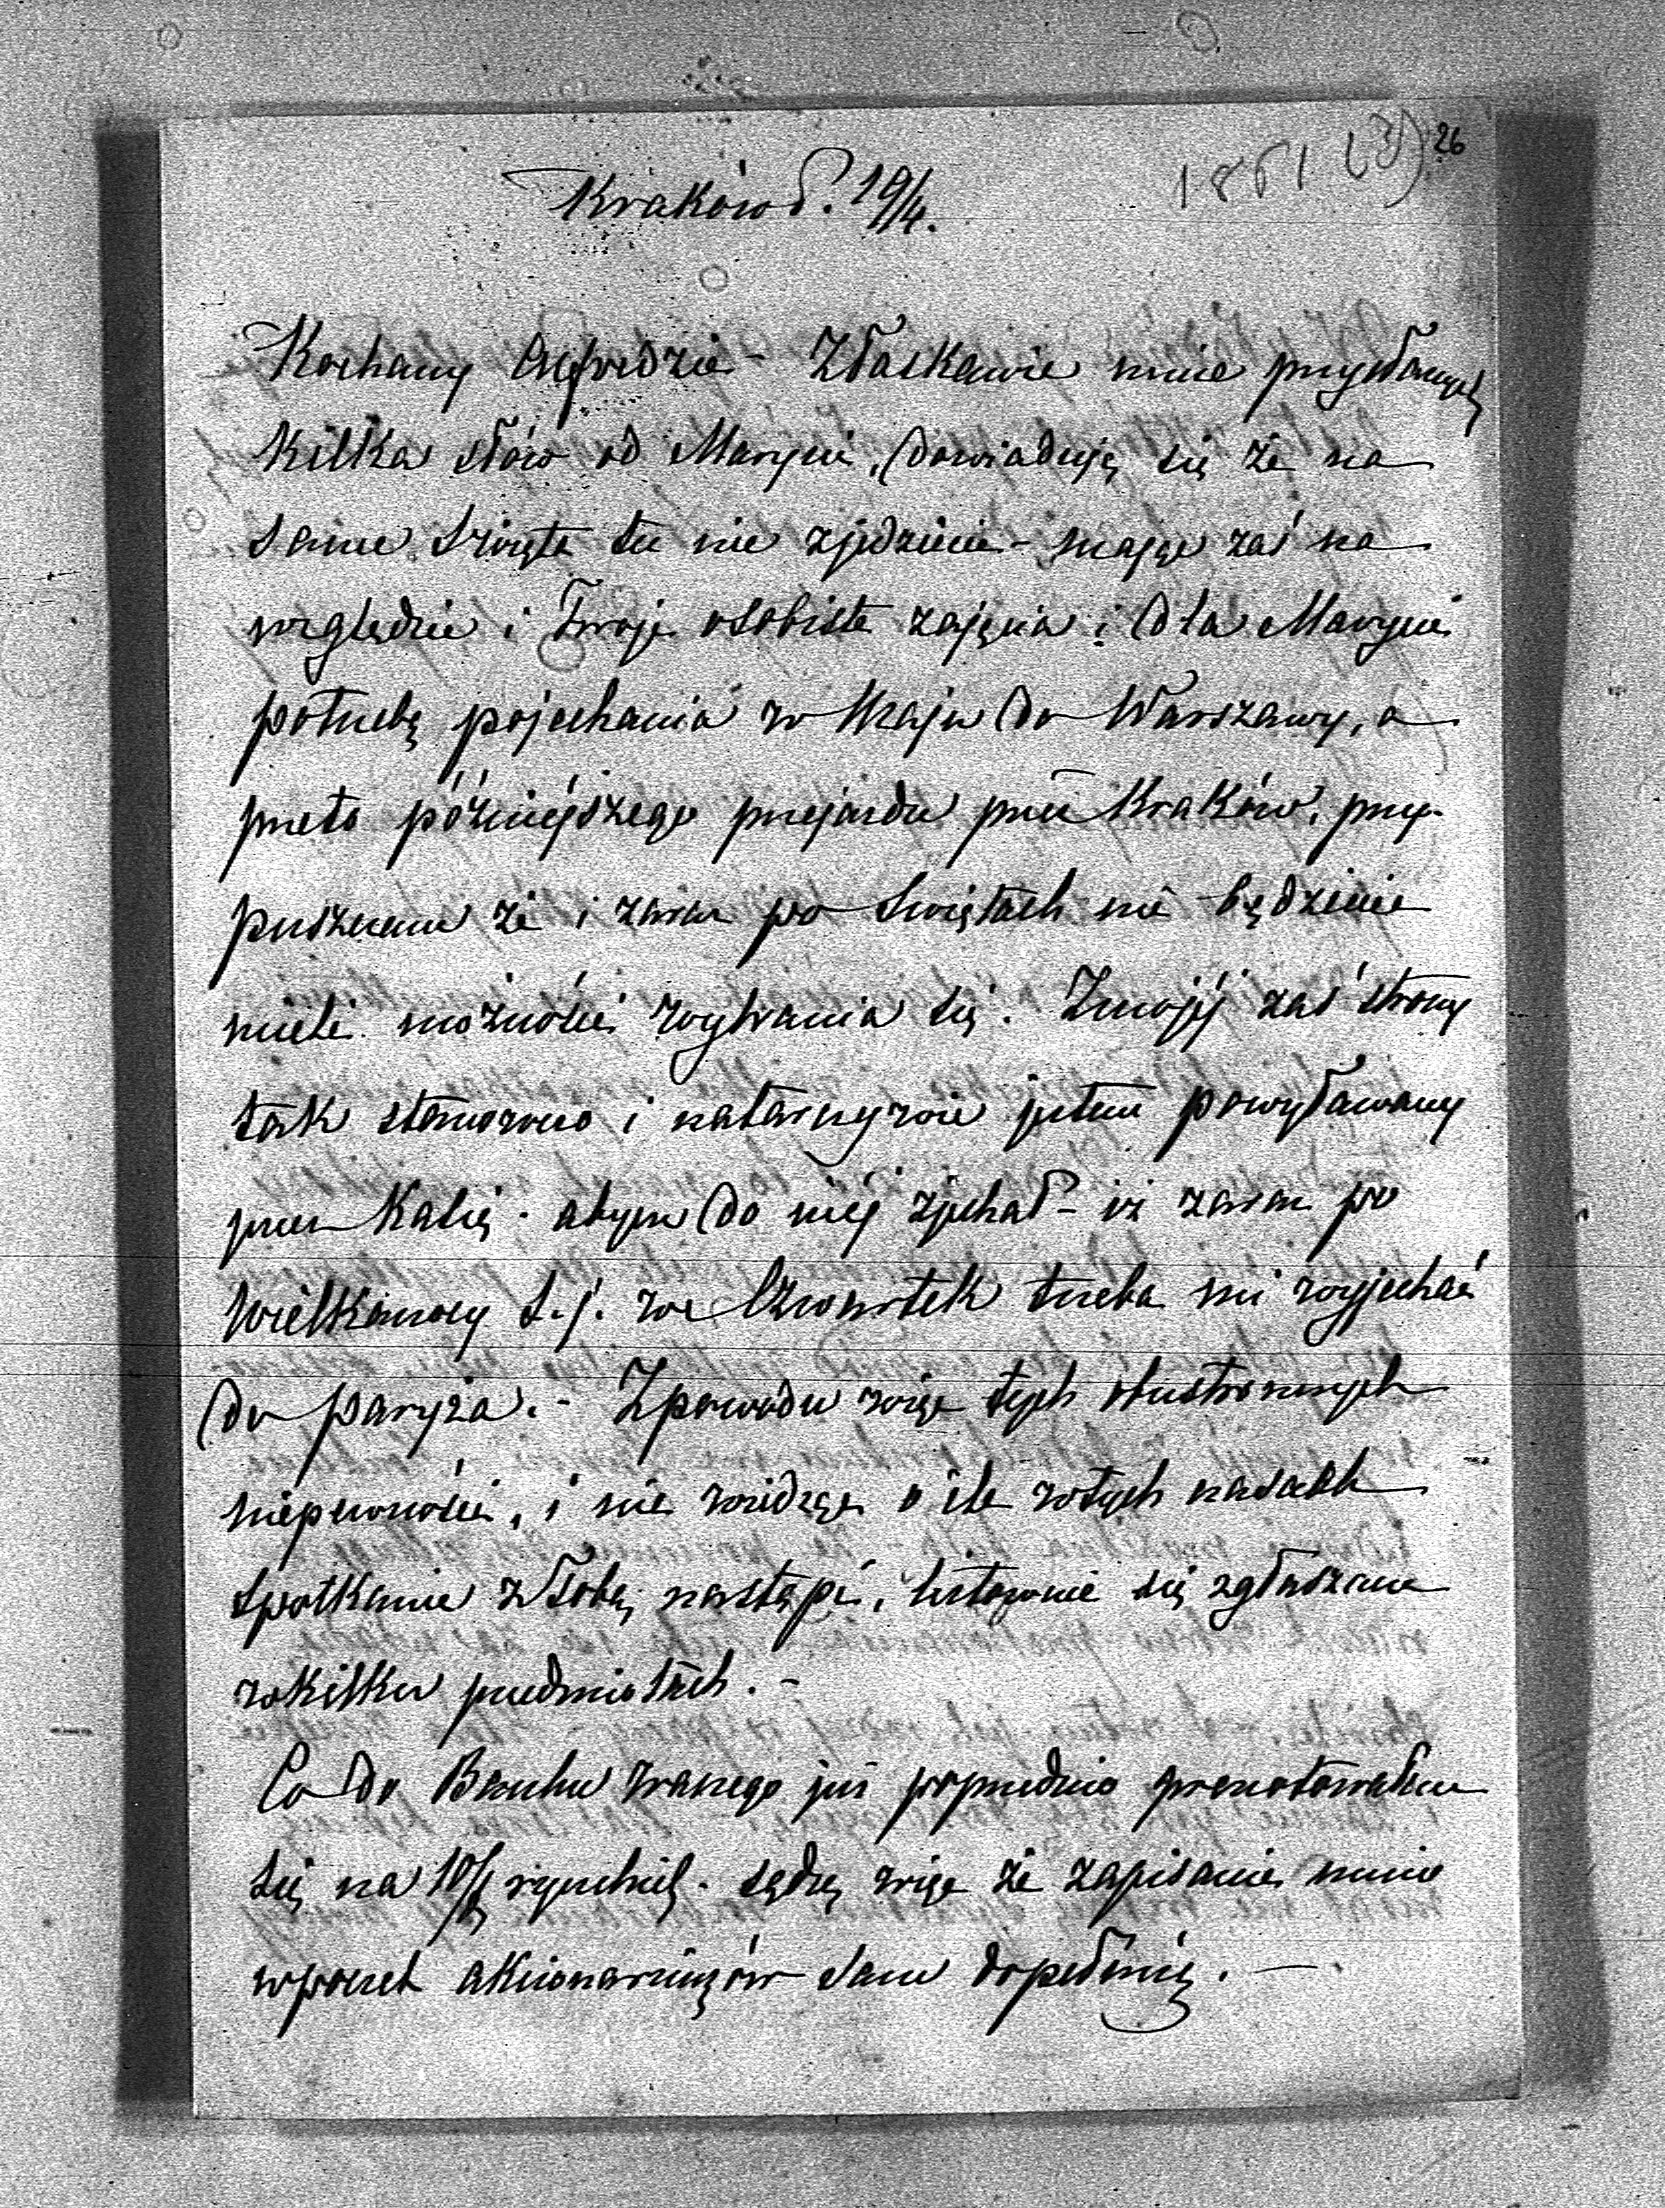 1861 (3) 26
Kraków d. 19/4.
Kochany Alfredzie - Złaskawie mnie przysłanych
kilka słów od Maryni, dowiaduję się że na
same Święta tu nie zjedziecie - mając zaś na
względzie i Twoje osobiste zajęcia i dla Maryni
potrzebę pojechania w Maju do Warszawy, a
przeto późniejszego przejazdu przez Kraków, przy-
puszczam że i zaraz po Świętach nie będziecie
mieli możności wybrania się. Zmojéj zaś strony
tak stanowczo i natarczywie jestem powoływany
przez Kasię - abym do niéj zjechał - iż zaraz po
Wielkanocy t.j. we Czwartek trzeba mi wyjechać
do Paryża. - Zpowodu więc tych obustronnych
niepewności, i nie widząc o ile wtych czasach
Spotkanie z Tobą nastąpi, listownie się zgłaszam
wkilku przedmiotach. -
Co do Banku waszego już poprzednio prenotowałem
się na 10/m sądzę więc że zapisanie mnie
wpoczet akcionariuszów sam dopełnię. -